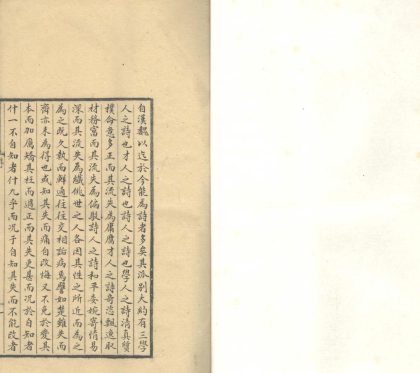 自漢魏以迄於今能為詩者多矣其派別大約有三學
人之詩也才人之詩也詩人之詩也學人之詩清真質
樸命意多正而其流失為庸膚才人之詩奇恣軼逸取
材務富而其流失為偏駁詩人之詩和平委婉寄情易
深而其流失為纖佻世之人各因其性之所近而為之
為之既久敖而鮮通往往交相詬病焉譬如楚雖失而
齊亦未為得也或知其失而痛自改悔又不免於愛其
本而加厲矯其枉而過正而其失更甚而況於自知者
什一不自知者什九乎而況于自知其失而不能改者